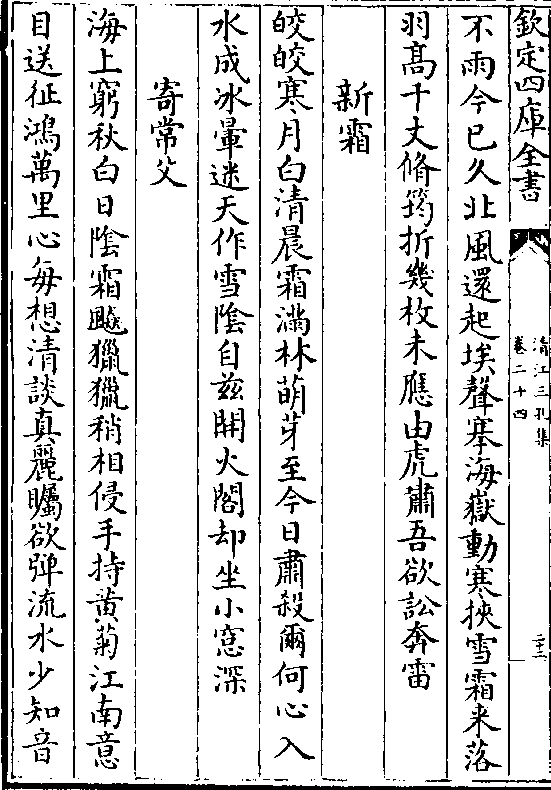 欽定四庫全書
清江三孔集
卷二十四
二十三
不雨今已久北風還起埃聲搴海嶽動寒挾雪霜来落
羽髙千丈脩筠折幾枚未應由虎蕭吾欲訟奔雷
新霜
皎皎寒月白清晨霜滿林萌芽至今日肅殺爾何心入
水成冰暈迷天作雪陰自兹開火閣却坐小窓深
寄常父
海上窮秋白日陰霜飈獵獵稍相侵手持黄菊江南意
目送征鴻萬里心每想清談真麗矚欲弹流水少知音